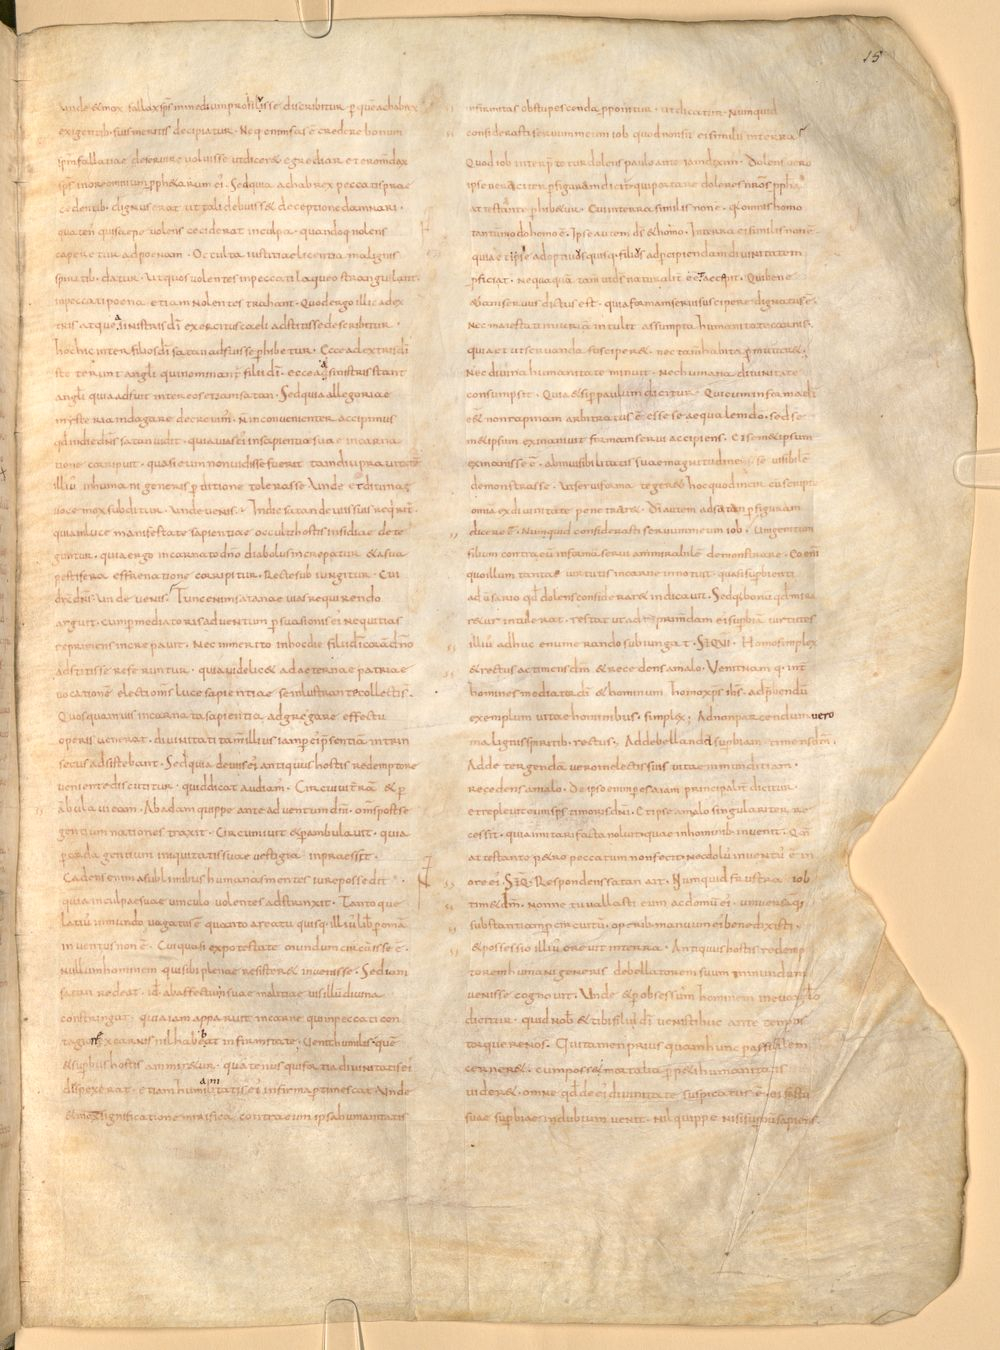 15
unde & mox fallax sps in medium prosilvisse discribitur · p quē achab rex
exigentib· suis meritis decipiatur · Neq· enim fas ē credere bonum
spm fallaciae deservire voluisse ut diceret egrediar et ero mdax
sps in ore omnium pph&arum ei' · Sed quia achab rex peccatis prae
cedentib· dignus erat ut tali debuiss& deceptione damnari ·
quaten' qui saepe volens ceciderat in culpa · quandoq· nolens
caperetur ad poenam · Occulta iustitiae licentia malignis
spiritib· datur · Ut quos volentes in peccati laqueo strangulant ·
in peccati poena etiam nolentes trahant · Quod ergo illic a dex
tris atque a sinistris di exercitus caeli adstitisse describitur ·
hoc hic inter filios di satan adfuisse perhibetur · Ecce a dextris di
steterunt angli qui nominant' filii di · ecce a sinistris stant
angli quia adfuit inter eos etiam satan · Sed quia allegoriae
mysteria indagare decrevim' · n inconvenienter accipimus
qd in die dns satan vidit · quia vias ei' in sapientiae suae incarna
tione corripuit · quasi eum non vidisse fuerit tamdiu pravitatē
illiu' in humani generis pditione tolerasse · Unde & ei divinae
voce mox subditur · unde venis · In die satan de viis suis requirit'
quia in luce manifestatae sapientiae occulti hostis insidiae dete
guntur · quia ergo incarnato dno diabolus increpatur & a sua
pestifera effrenatione corripitur · Recte subiungitur · Cui
dix dns · unde venis · Tunc enim satanae vias requirendo
arguit · cum p mediatoris adventum psuasionis ei' nequitias
reprimens increpavit · Nec inmerito in hoc die filii di coram dno
adstitisse referuntur · quia videlic& ad aeternae patriae
vocationē electi omis luce sapientiae se inlustrante collecti s ·
Quos quamvis incarnata sapientia adgregare effectu
operis venerat · divinitati tam illius iam p ei' psentia intrin
secus adsistebant · Sed quia de viis ei' antiquus hostis redemptore
veniente discutitur · quid dicat audiam' · Circuivi trā & p
ābulavi eam · Ab adam quippe ante adventum dni · oms post se
gentium nationes traxit · Circumivit & pambulavit · quia
p corda gentium iniquitatis suae vestigia inpraessit ·
Cadens enim a sublimibus humanas mentes iure possedit ·
quia in culpae suae vinculo volentes adstrinxit · Tantoque
latiu' in mundo vagatus ē quanto a reatu quisq· illiu' lib p omā
inventus non ē · Cui quasi ex potestate mundum circuisse ē ·
nullum hominem qui sibi plenae resister& invenisse · Sed iam
satan redeat · id ab affectum suae malitiae vis illū divina
constringat · quia iam apparuit in carne qui in peccati con
tagio ex carnis nil habebat infirmitate · Venit humilis · quē
& supbus hostis ammir&ur · quatenus qui fortia divinitatis ei'
dispexerat · etiam humanitatis ei' infirma ptimescat · Unde
& mox significatione mirifica contra eum ipsa humanitatis
infirmitas obstupescenda pponitur · ut dicatur · Numquid
considerasti servum meum iob quod non sit ei similis in terra
Quod iob interptetur dolens paulo ante iam dixim' · Dolens vero
ipse veraciter p figuram dicit' qui portare dolores nros ppha
attestante phib&ur · Cui in terra similis non ē · q omnis homo
tantummodo homo ē · Ipse autem ds & homo · In terra ei similis non ē ·
quia etsi adoptivus quisq· filius ad pcipiendam divinitatem
pficiat · nequaquā tam ut ds naturalit' ē & accipit · Qui bene
&iam servus dictus est · quia formam servi suscipere dignatus ē ·
Nec maiestati iniuriā intulit assumpta humanitate carnis
quia & ut servanda susciper& · nec tam habita pmutar& ·
Nec divina humanitate minuit · Nec humana divinitate
consumpsit · Quia & si p paulum dicitur · Qui cum in forma di
e& non rapinam arbitratus ē esse se aequalem do · sed se
m&ipsum exinanivit formam servi accipiens · Ei sem&ipsum
exinanisse ē · ab invisibilitatis suae magnitudine se visibilē
demonstrasse · Ut servi forma teger& hoc quod incircūscripte
omnia ex divinitate penetrar& · Di autem ad satan p figuram
dicere ē · Numquid considerasti servum meum iob · Unigenitum
filium contra eū in forma servi ammirabilē demonstrare · Eo enī
quo illum tantae virtutis in carne innotuit · quasi supbienti
adversario qd dolens considerar& indicavit · Sed q· bonū qd mira
r&ur intulerat · restat ut adprimendam ei' supbiā virtutes
illiu' adhuc enumerando subiungat · SEQUI · Homo simplex
& rectus ac timens dm & recedens a malo · Venit nam q· int
homines mediator di & hominum homo xps ihs · ad pbendū
exemplum vitae hominibus · simplex; Ad non parcendum vero
malignis spiritib· rectus; Ad debellandā supbiam timens dm ·
Ad detergendā vero in electis suis vitae inmunditiam ·
recedens a malo · De ipso enim p esaiam principalit' dicitur
et replevit eum sps timoris dni · Et ipse a malo singulariter re
cessit · quia imitari facta noluit quae in hominib· invenit · Qm
attestante p&ro peccatum non fecit · nec dolu' inventu' ē in
ore ei' · SEQ · Respondens satan ait · Numquid frustra iob
tim& dm · Nonne tu vallasti eum ac domū ei' · universāq·
substantiam p circuitu' · operib· manuum ei' benedixisti ·
& possessio illiu' crevit in terra · Antiquus hostis redemp
torem humani generis debellatorem suum in mundum
venisse cognovit · Unde & p obsessum hominem in evangelio
dicitur · quid nob & tibi fili di venisti huc ante tempus
torquere nos · Qui tamen prius quam hunc passibilem
cerner& · cum posse mortalia p p&i humanitatis
vider& · omne qd de ei' divinitate suspicatus ē · ei fastu
suae supbiae in dubium venit · Nil quippe nisi supbū sapiens